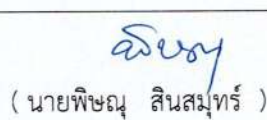 พิษณุ
( นายพิษณุ สินสมุทร์ )